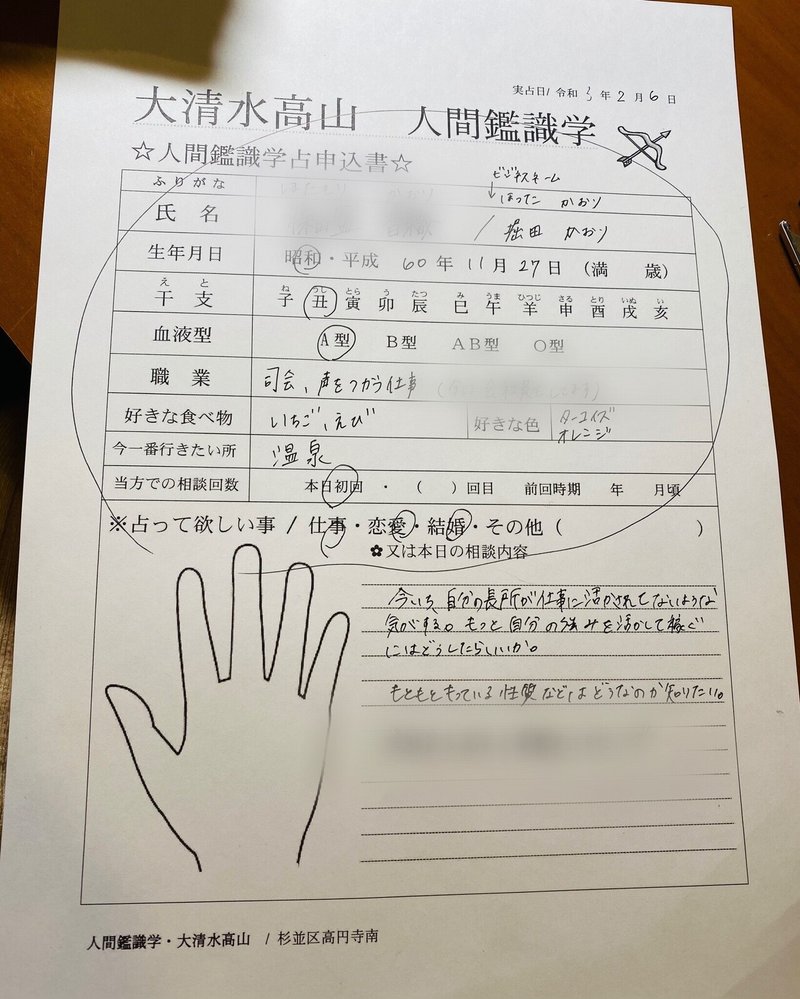 実占日/ 令和 3 年 2 月 6 日
大清水高山 人間鑑識学
☆人間鑑識学占申込書☆
ふりがな
ビジネスネーム
↓ほった かおり
氏 名 / 堀田 かおり
生年月日 昭和・平成 60 年 11 月 27 日 (満 歳)
えと ね うし とら う たつ み うま ひつじ さる とり いぬ い
干支 子 丑 寅 卯 辰 巳 午 羊 申 酉 戌 亥
血液型 A型 B型 AB型 O型
職業 司会、声をつかう仕事
好きな食べ物 いちご、えび 好きな色 ターコイズ
オレンジ
今一番行きたい所 温泉
当方での相談回数 本日初回 ・ ( )回目 前回時期 年 月頃
※占って欲しい事 / 仕事・恋愛・結婚・その他 ( )
✿又は本日の相談内容
今いち、自分の長所が仕事に活かされてないような
気がする。もっと自分の強みを活かして稼ぐ
にはどうしたらいいか。
もともともっている性質などはどうなのか知りたい。
人間鑑識学・大清水高山 / 杉並区高円寺南